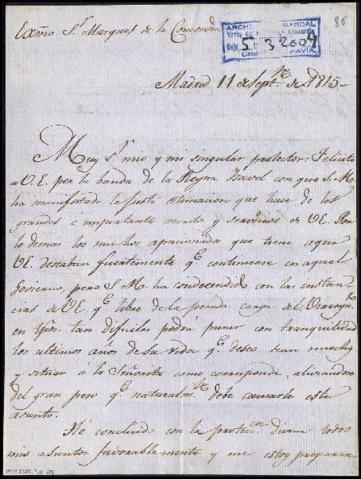 Exmo Sr Marques de la Concordia
ARCH ABASCAL
5 3 2004
86
Madrid 11 de Septre de 1815-
Muy Sr mio y mi singular protector: Felicito
a V.E. por la banda de la Reyna Isavel con que S. M.
ha manifestado la justa estimacion que hace de los
grandes e importante merito y servicios de V.E. Por
lo demas los muchos apasionados que tiene aqui
V.E. deseaban fuertemente qe continuara en aquel
Govierno, pero S. M. ha condecendido con las instan
cias de V.E. qe libre de la pesada carga del Vireynto
en tpos tan dificiles podrá pasar con tranquilidad
los ultimos años de la vida qe deseo sean muchos
y estar a la Señorita como corresponde, aliviandose
del gran peso qe naturalmte debe causarle este
asunto.
Hé concluido con la proteccn divina todos
mis asuntos favorablemente y me estoy preparan